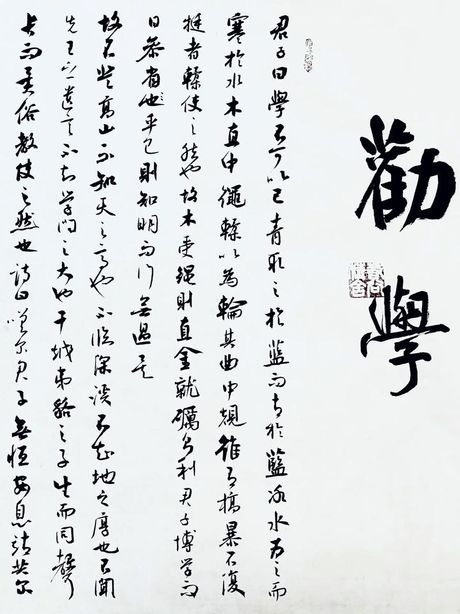 勸學
君子曰學不可以已青取之於藍而青於藍冰水為之而
寒於水木直中繩輮以為輪其曲中規雖有槁暴不復
挺者輮使之然也故木受繩則直金就礪則利君子博學而
日參省也乎己則知明而行無過矣
故不登高山不知天之高也不臨深谿不知地之厚也不聞
先王之遺言不知學問之大也干越夷貉之子生而同聲
長而異俗教使之然也詩曰嗟爾君子無恆安息靖共爾